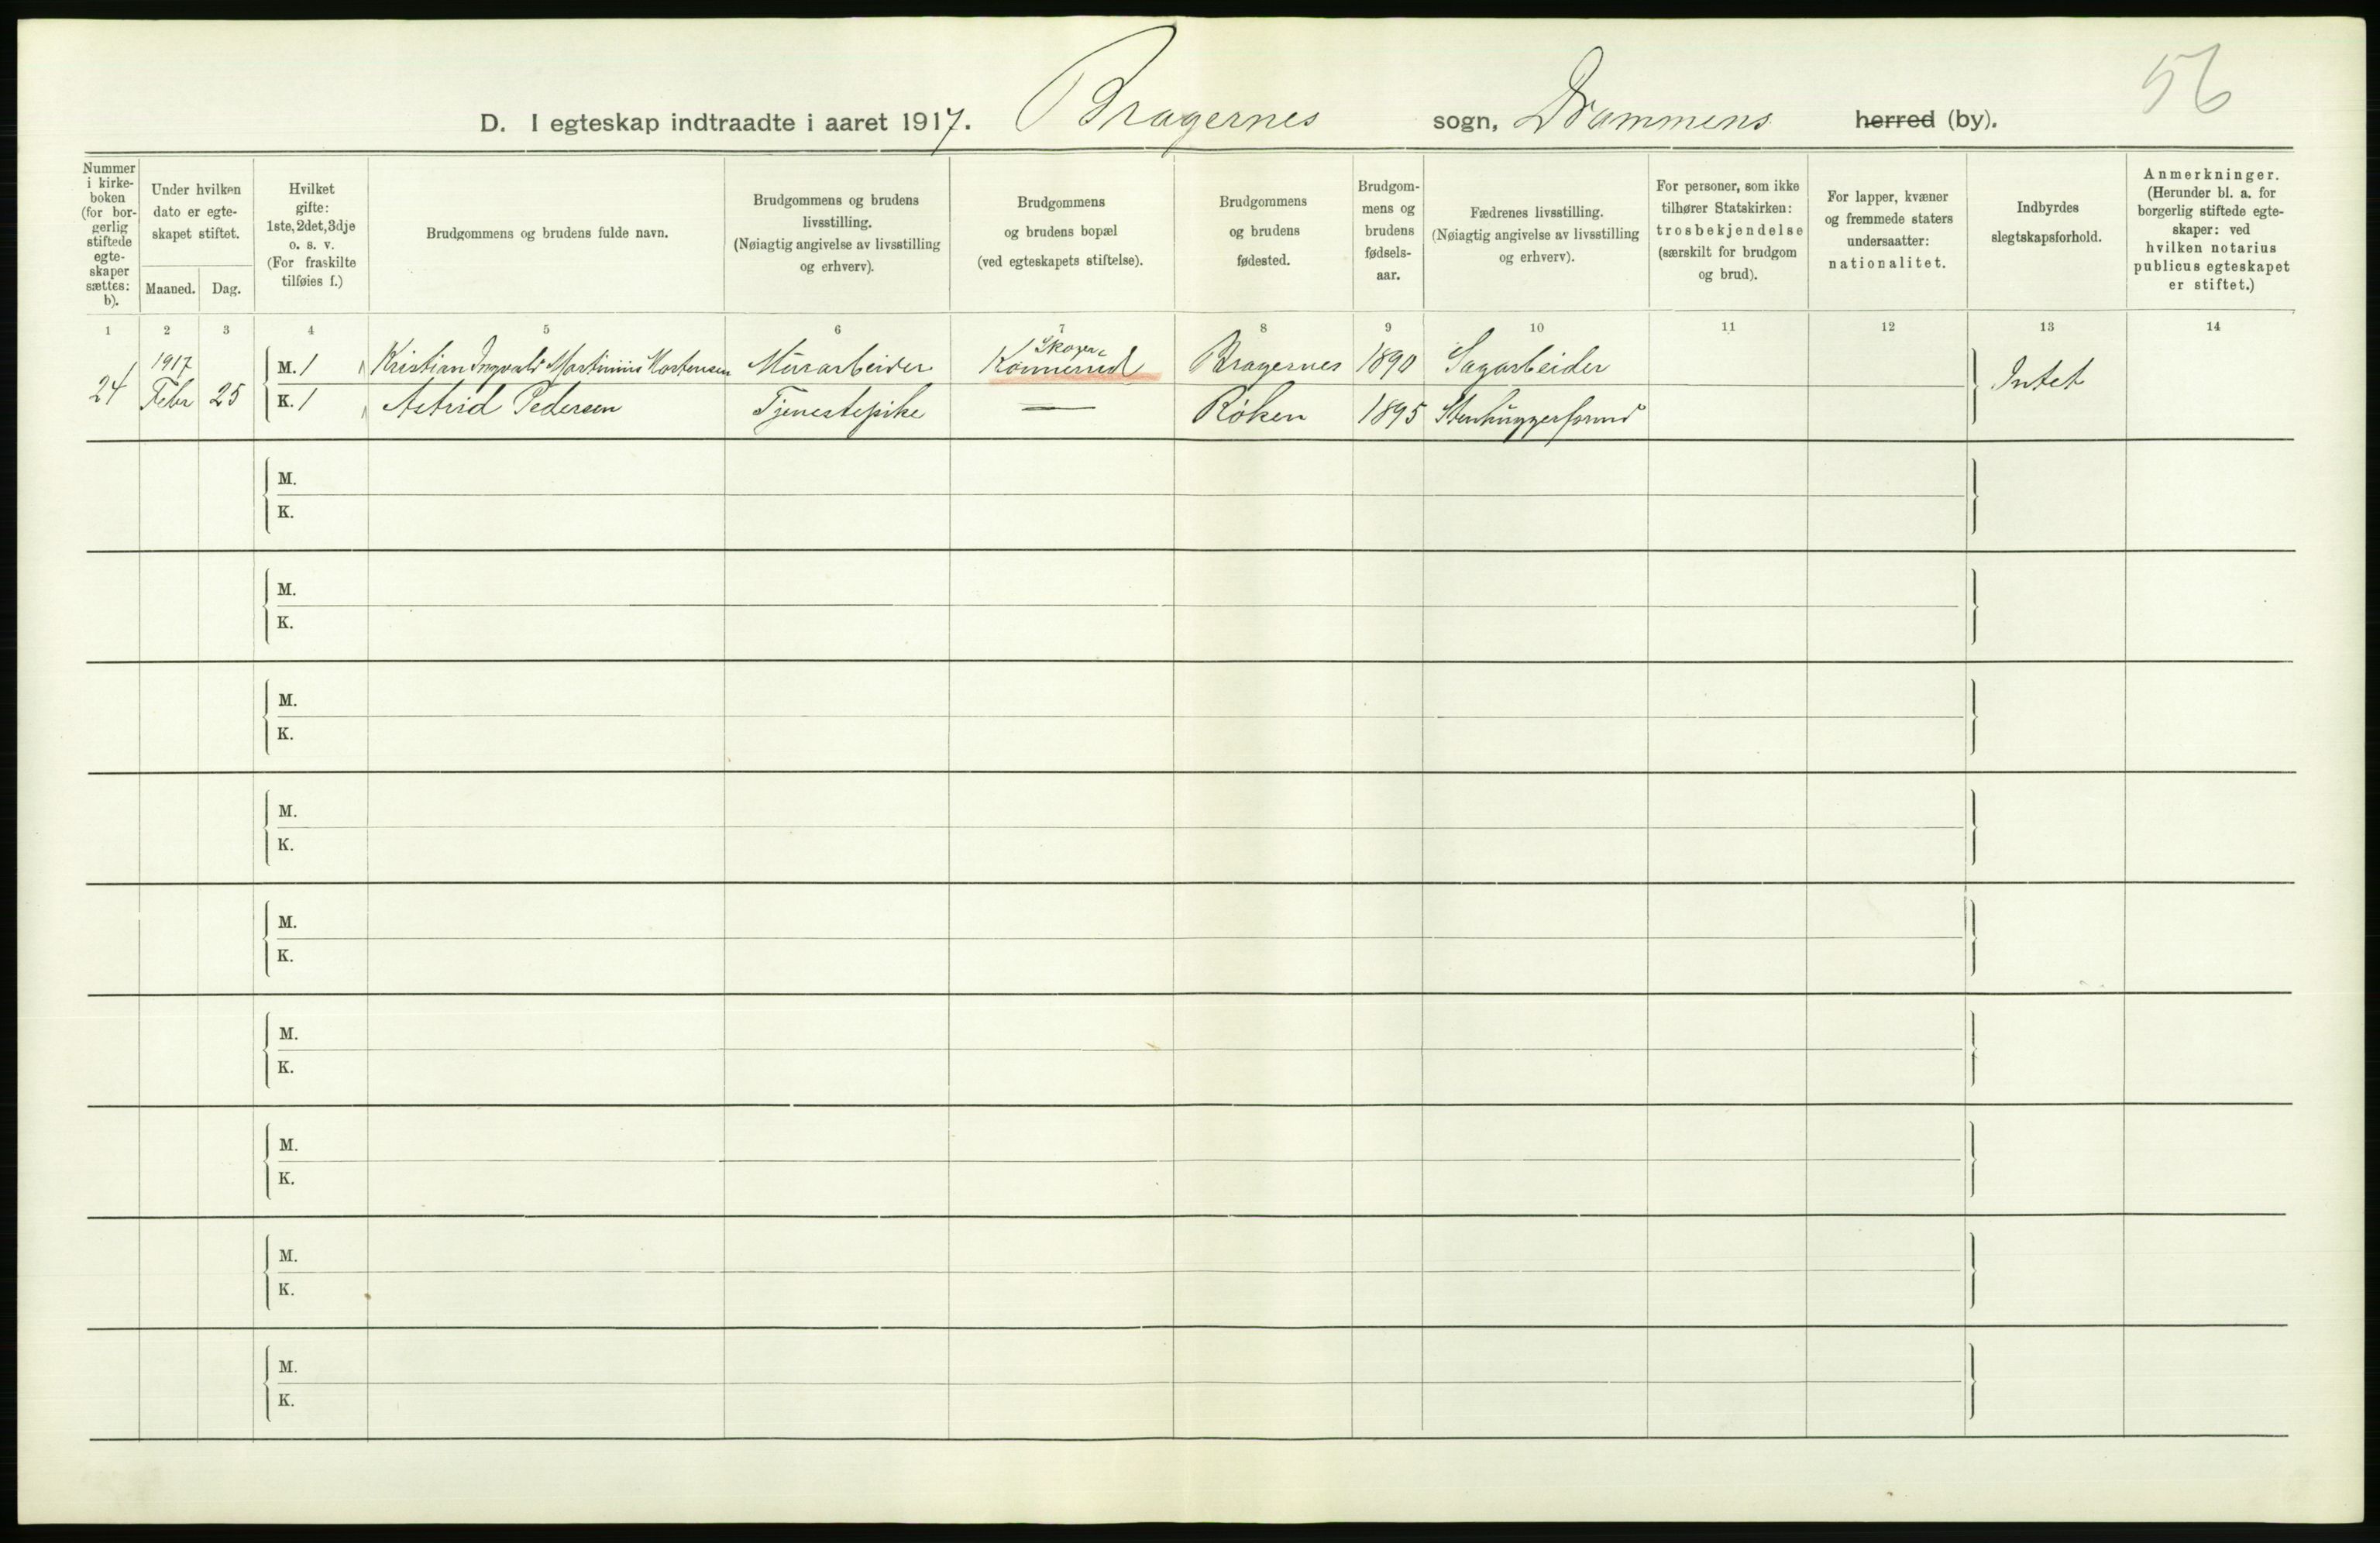 56
D. I egteskap indtraadte i aaret 1917. Bragernes sogn, Drammens herred (by).
Nummer i kirke-boken (for bor-gerlig stiftede egte-skaper sættes: b).
Under hvilken dato er egte-skapet stiftet.
Maaned. Dag.
Hvilket gifte: 1ste, 2det, 3dje o. s. v. (For fraskilte tilføies f.)
Brudgommens og brudens fulde navn.
Brudgommens og brudens livsstilling. (Nøiagtig angivelse av livsstilling og erhverv).
Brudgommens og brudens bopæl (ved egteskapets stiftelse).
Brudgommens og brudens fødested.
Brudgom-mens og brudens fødsels-aar.
Fædrenes livsstilling. (Nøiagtig angivelse av livsstilling og erhverv).
For personer, som ikke tilhører Statskirken: trosbekjendelse (særskilt for brudgom og brud).
For lapper, kvæner og fremmede staters undersaatter: nationalitet.
Indbyrdes slegtskapsforhold.
Anmerkninger. (Herunder bl. a. for borgerlig stiftede egte-skaper: ved hvilken notarius publicus egteskapet er stiftet.)
1 2 3 4 5 6 7 8 9 10 11 12 13 14
1917 Skoger
M. 1 Kristian Ingvald Martinius Mortensen Murarbeider Konnerud Bragernes 1890 Sagarbeider
24 Febr 25 Intet
K. 1 Astrid Pedersen Tjenestepike — Röken 1895 Stenhuggerformd
M.
K.
M.
K.
M.
K.
M.
K.
M.
K.
M.
K.
M.
K.
M.
K.
M.
K.